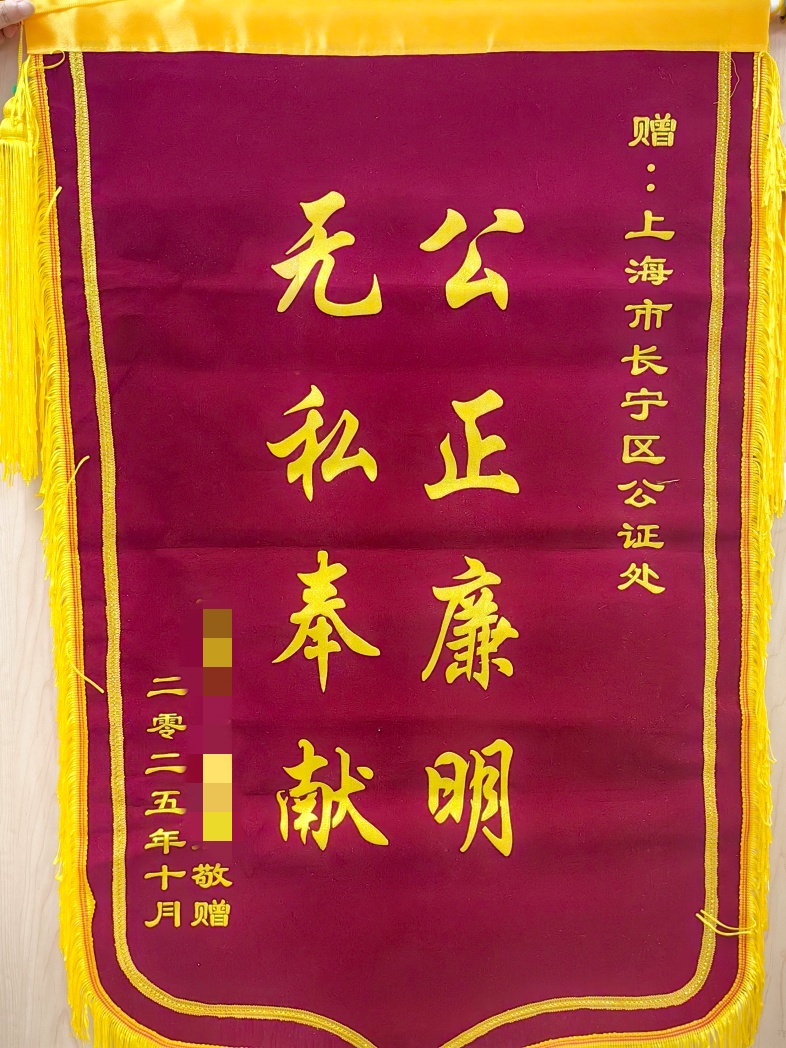 赠：上海市长宁区公证处
公正廉明
无私奉献
敬赠
二零二五年十月